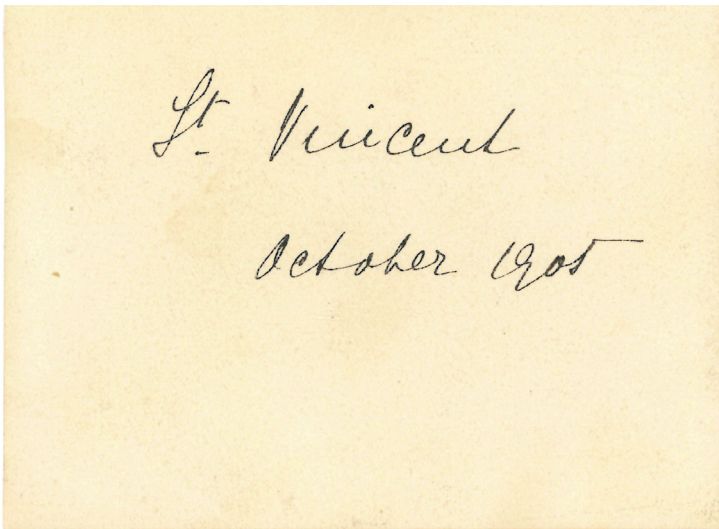 St. Vincent
October 1905